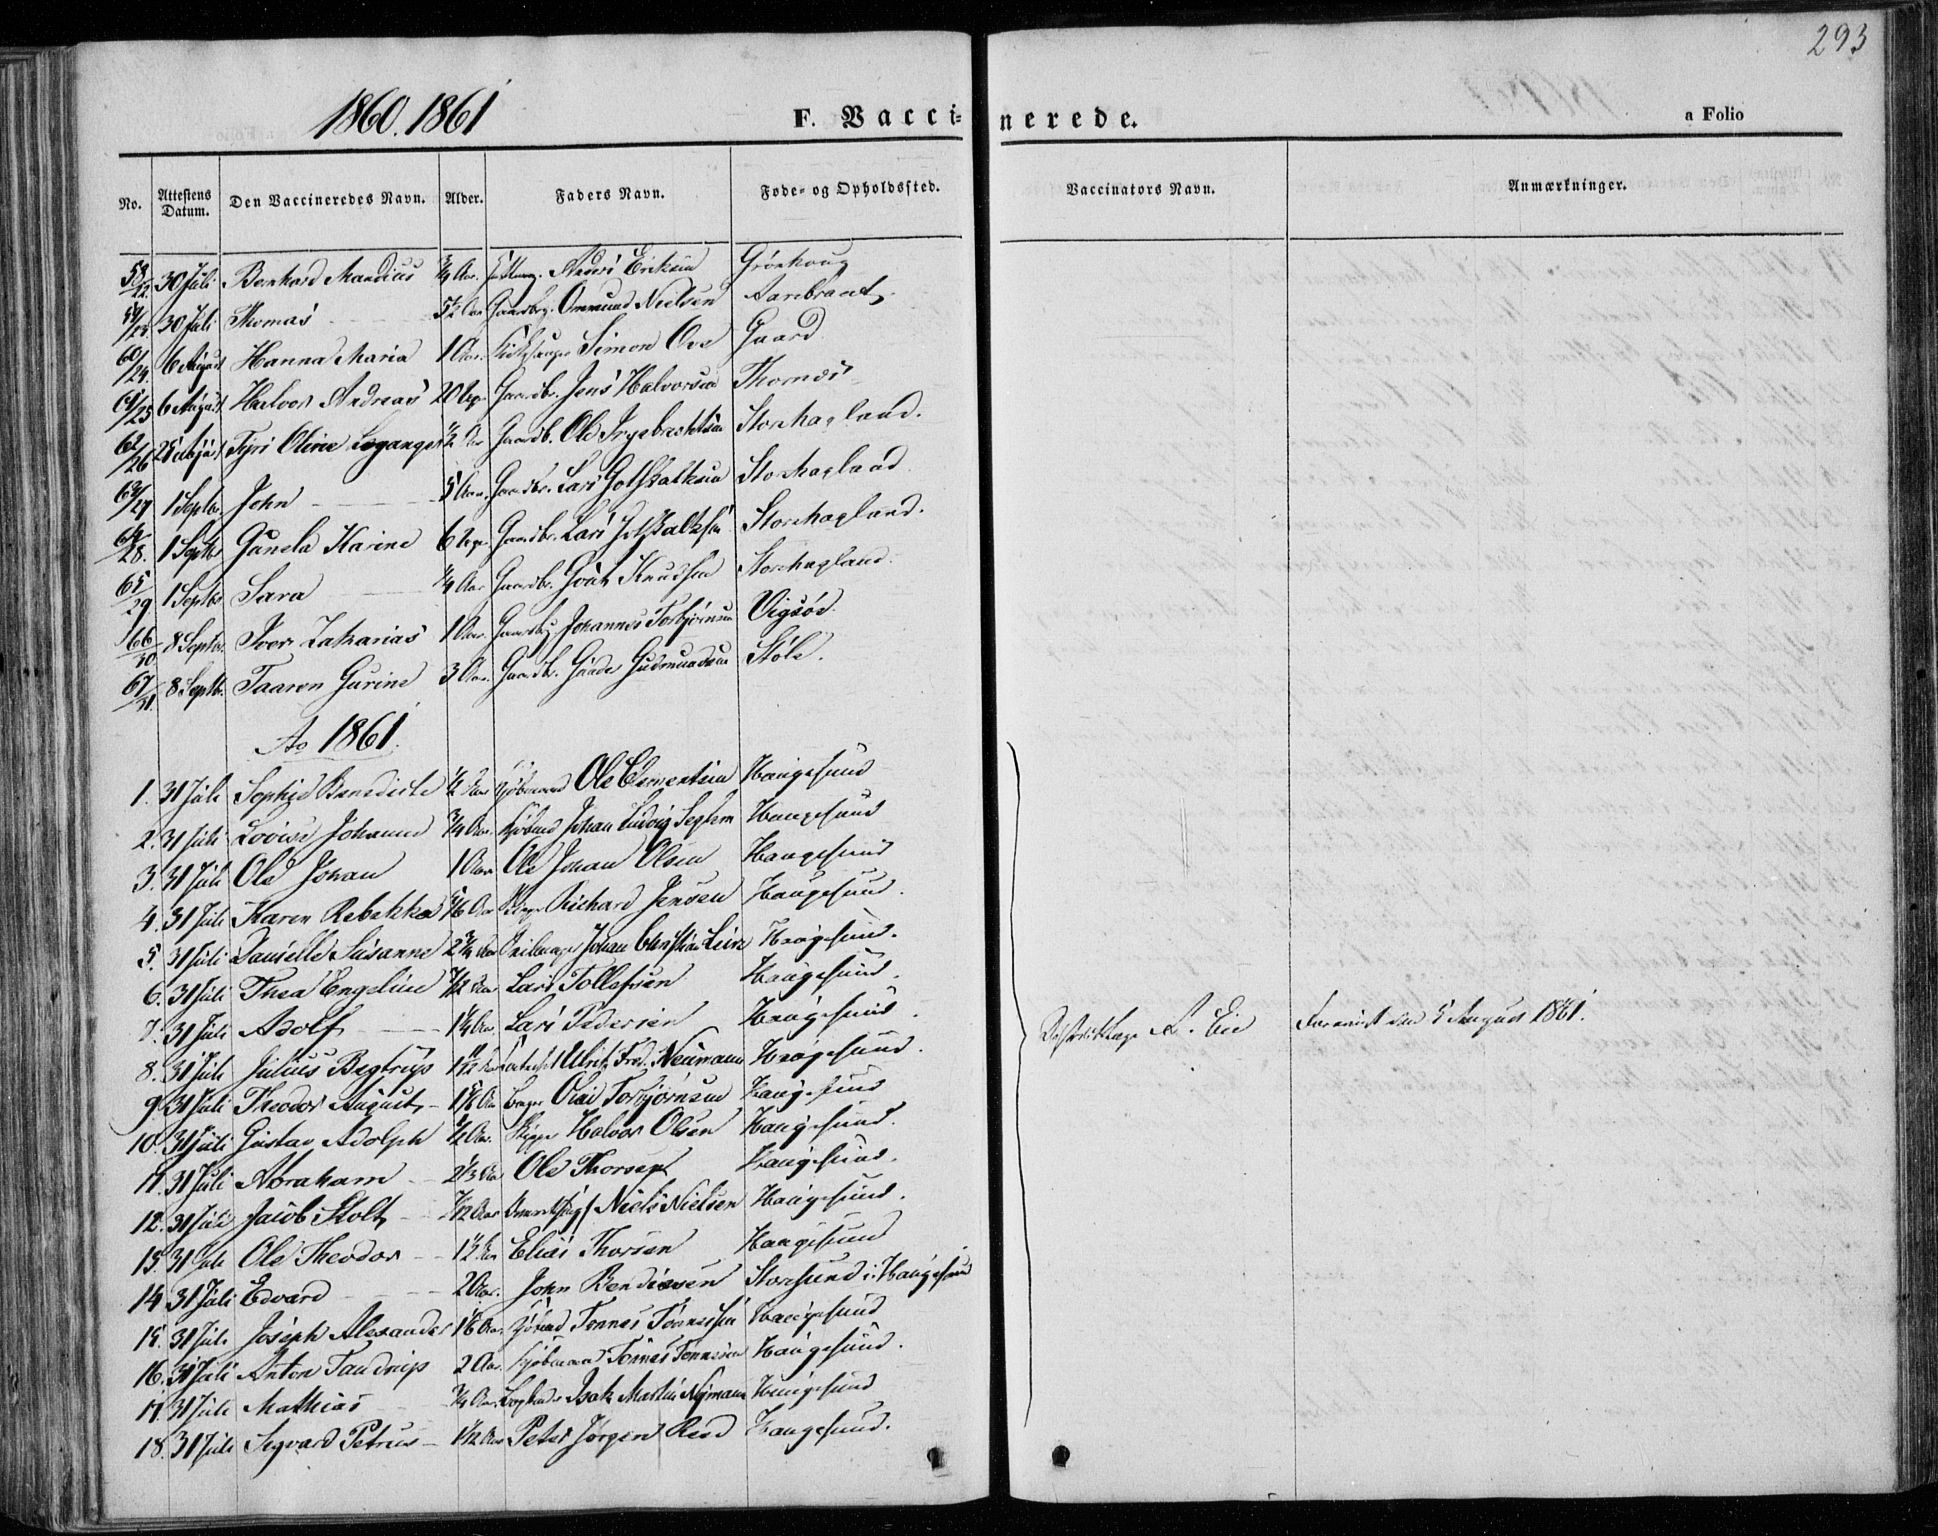 293
1860. 1861
F. Vaccinerede.
a Folio
No. Attestens Datum. Den Vaccineredes Navn. Alder. Faders Navn. Føde- og Opholdssted. Vaccinators Navn. Anmærkninger.
58/22. 30 Juli Bernhard Mandius 3/4 Aar. Anders Eriksen Grönhoug
59/23. 30 Juli Thomas 5 1/2 Aar Gaardbr. Ommund Nielsen
60/24. 6 August Hanna Maria 1 Aar. Kirkesanger Simon Ove Gaard
61/25 6 August Halvor Andreas 20 Uger Gaardbr. Jens Halvorsen Thornæs
62/26 25 August Tyri Oline 1/2 Aar Gaardb. Ole Ingebrechtsen Storehagland.
63/27 1 Septbr. John 5 Aar. Gaardbr. Lars Gotskalksen Storhagland
64/28. 1 Septbr Gunela Karine 6 Uger Gaardbr. Lars Gotskalksen Storehagland.
65/29 1 Septbr Sara 1/4 Aar Gaardbr. Knudsen Storehagland.
66/30 8 Septbr. Iver Zakarias 1 Aar. Gaardbr Johannes Torbjörnsen Vigsöe
67/31. 8 Septbr. Taaren Gurine 3 Aar. Gaardbr. Gunde Gudmundsen Stöle.
Ao 1861.
1. 31 Juli Sophie Benedicte 1/2 Aar Kjöbmand Ole Clementsen Haugesund
2. 31 Juli Lovise Johanne 3/4 Aar. Kjöbmd Johan Ludvig Seglem Haugesund
3. 31 Juli Ole Johan 1 Aar Ole Johan Olsen Haugesund
4. 31 Juli Karen Rebekka 5/6 Aar Richard Jensen Haugesund.
5. 31 Juli Danielle Susanne 2 3/4 Aar Johan Christian Haugesund.
6. 31 Juli Thea Engeline 7/12 Aar Lars Tollefsen Haugesund.
7. 31 Juli Adolf 1 1/4 Aar. Lars Pedersen Haugesund.
8. 31 Juli Julius Begtrup Ulrik Fred. Neumann Haugesund.
9. 31 Juli Theodor August 1 5/6 Aar Bager Olai Torbjörnsen Haugesund
10. 31 Juli Gustav Adolph 1/2 Aar. Skipper Halvor Olsen Haugesund.
11. 31 Juli Abraham 2 1/3 Aar Ole Thorsen Haugesund.
12. 31 Juli Jacob Stolt 7/12 Aar Niels Nielsen Haugesund.
13. 31 Juli Ole Theodor 1 1/2 Aar Elias Thorsen Haugesund
14. 31 Juli Edvard 2 Aar. John Bendixen Storesund i Haugesund
15. 31 Juli Joseph Alexander 1 1/6 Aar Kjöbmd Tönnes Tönnessen Haugesund
16. 31 Juli Anton Tandrup 2 Aar. Kjöbmand Tönnes Tönnesen Haugesund.
17. 31 Juli Mathias 3/4 Aar. Isak Martin Nymann Haugesund
18. 31 Juli Sigvard Petrus 1/12 Aar Peter Jörgen Haugesund.
Districtslæge L. Eie
Foreviist den 5 August 1861.